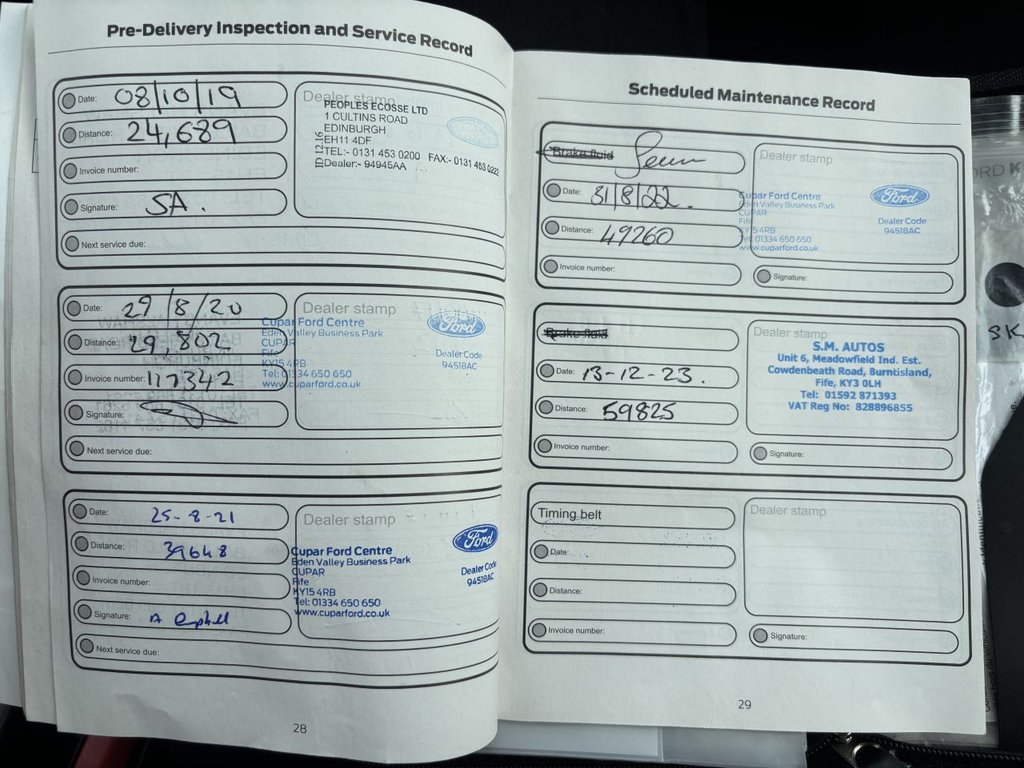 Pre-Delivery Inspection and Service Record
Date: 08/10/19
Distance: 24,689
Invoice number:
Signature: SA.
Next service due:
Dealer stamp
PEOPLES ECOSSE LTD
1 CULTINS ROAD
EDINBURGH
EH11 4DF
TEL:- 0131 453 0200 FAX:- 0131 453 0222
Dealer:- 94945AA
ID 12.16
Date: 29/8/20
Distance: 29,802
Invoice number: 117342
Signature:
Next service due:
Dealer stamp
Cupar Ford Centre
Eden Valley Business Park
CUPAR
Fife
KY15 4RB
Tel: 01334 650 650
www.cuparford.co.uk
Ford
Dealer Code
94518AC
Date: 25-8-21
Distance: 39648
Invoice number:
Signature: A
Next service due:
Dealer stamp
Cupar Ford Centre
Eden Valley Business Park
CUPAR
Fife
KY15 4RB
Tel: 01334 650 650
www.cuparford.co.uk
Ford
Dealer Code
94518AC
28
Scheduled Maintenance Record
Brake fluid
Date: 31/8/22.
Distance: 49260
Invoice number:
Dealer stamp
Cupar Ford Centre
Eden Valley Business Park
CUPAR
Fife
KY15 4RB
Tel: 01334 650 650
www.cuparford.co.uk
Ford
Dealer Code
94518AC
Signature:
Brake fluid
Date: 13-12-23.
Distance: 59825
Invoice number:
Dealer stamp
S.M. AUTOS
Unit 6, Meadowfield Ind. Est.
Cowdenbeath Road, Burntisland,
Fife, KY3 0LH
Tel: 01592 871393
VAT Reg No: 828896855
Signature:
Timing belt
Date:
Distance:
Invoice number:
Dealer stamp
Signature:
29